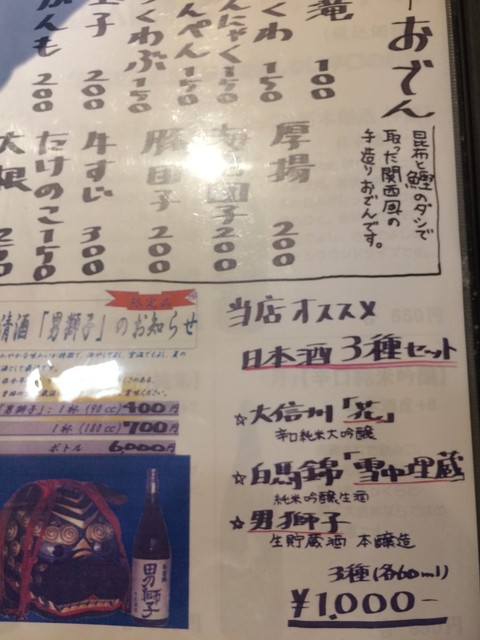 おでん
昆布と鰹のダシで
取った関西風の
手造りおでんです。
100
150
こんにゃく 150
ちくわぶ 150
玉子 200
がんも 200
厚揚 200
団子 200
豚団子 200
牛すじ 300
たけのこ 150
大根
限定品
清酒「男獅子」のお知らせ
「男獅子」:1杯(98cc)400円
1杯(180cc)700円
ボトル 6,000円
男獅子
当店オススメ
日本酒3種セット
☆大信州「花」
辛口純米大吟醸
☆白馬錦「雪中埋蔵
純米吟醸生酒
☆男獅子
生貯蔵酒 本醸造
3種(各60ml)
¥1,000-